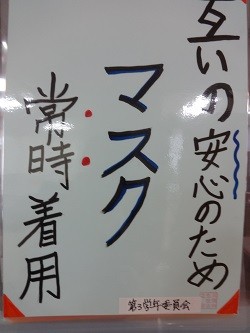 互いの安心のため
マスク
常時着用
第3学年委員会